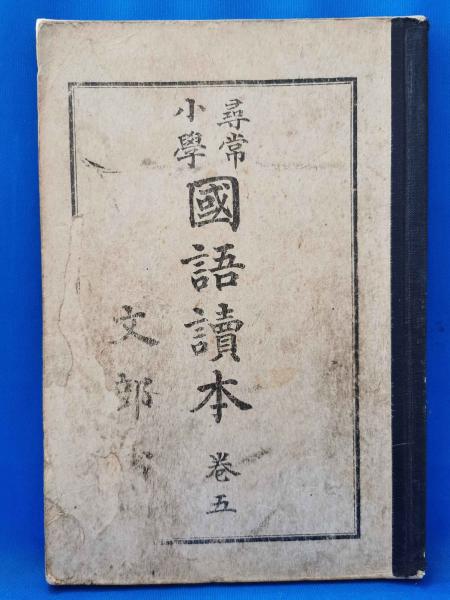 尋常
小學
國語讀本
卷五
文部